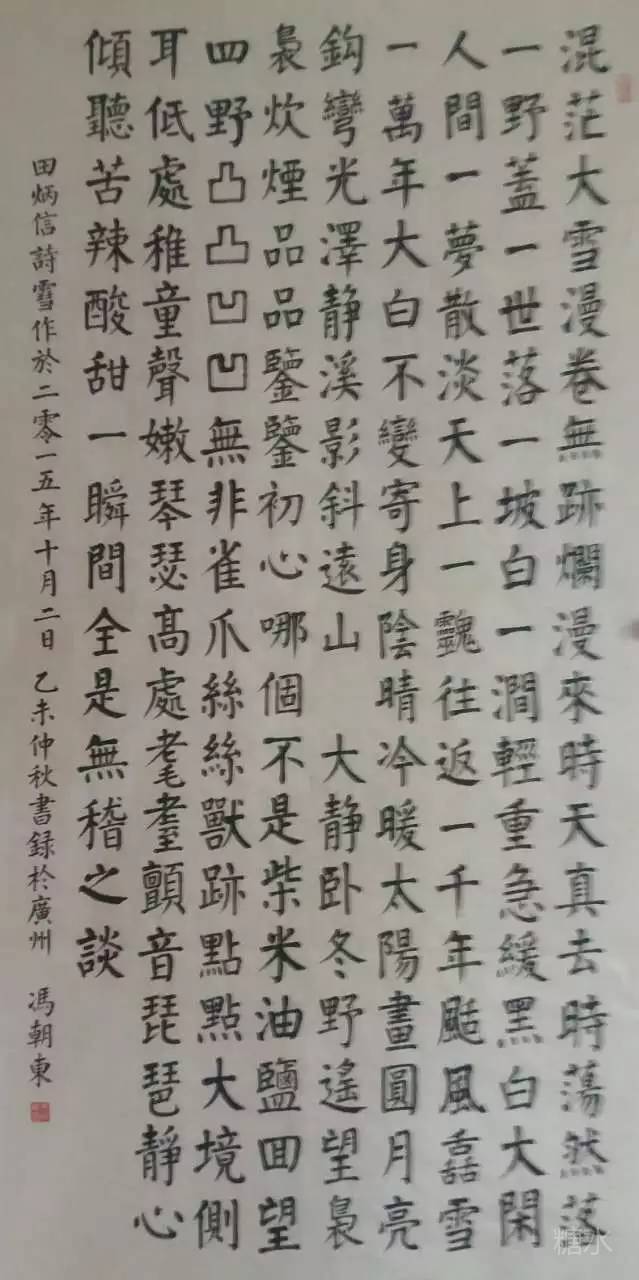 混茫大雪漫卷無跡爛漫來時天真去時蕩然落
一野蓋一世落一坡白一澗輕重急緩黑白大閑
人間一夢散淡天上一往返一千年颳風雪
一萬年大白不變寄身陰晴冷暖太陽畫圓月亮
鈎彎光澤静溪影斜遠山 大静卧冬野遙望裊
裊炊煙品品鑒鑒初心哪個不是柴米油鹽回望
四野凸凸凹凹無非雀爪絲絲獸跡點點大境側
耳低處稚童聲嫩琴瑟高處耄耋顫音琵琶静心
傾聽苦辣酸甜一瞬間全是無稽之談
田炳信詩雪作於二零一五年十月二日 乙未仲秋書録於廣州 馮朝東
糖水